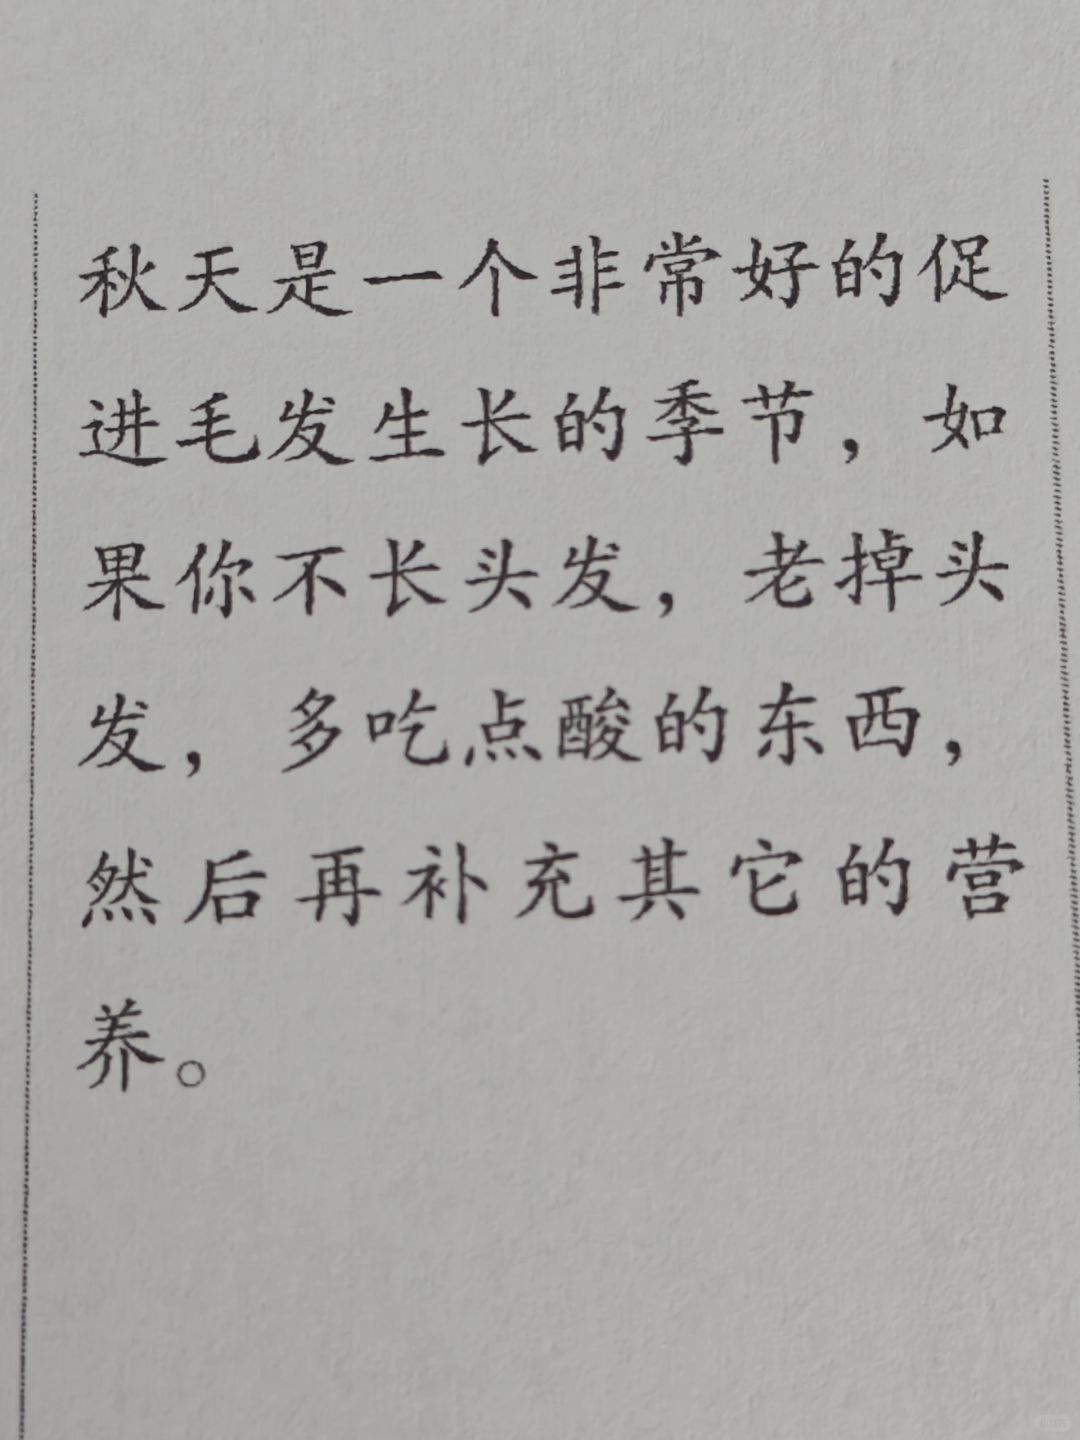 秋天是一个非常好的促
进毛发生长的季节，如
果你不长头发，老掉头
发，多吃点酸的东西，
然后再补充其它的营
养。